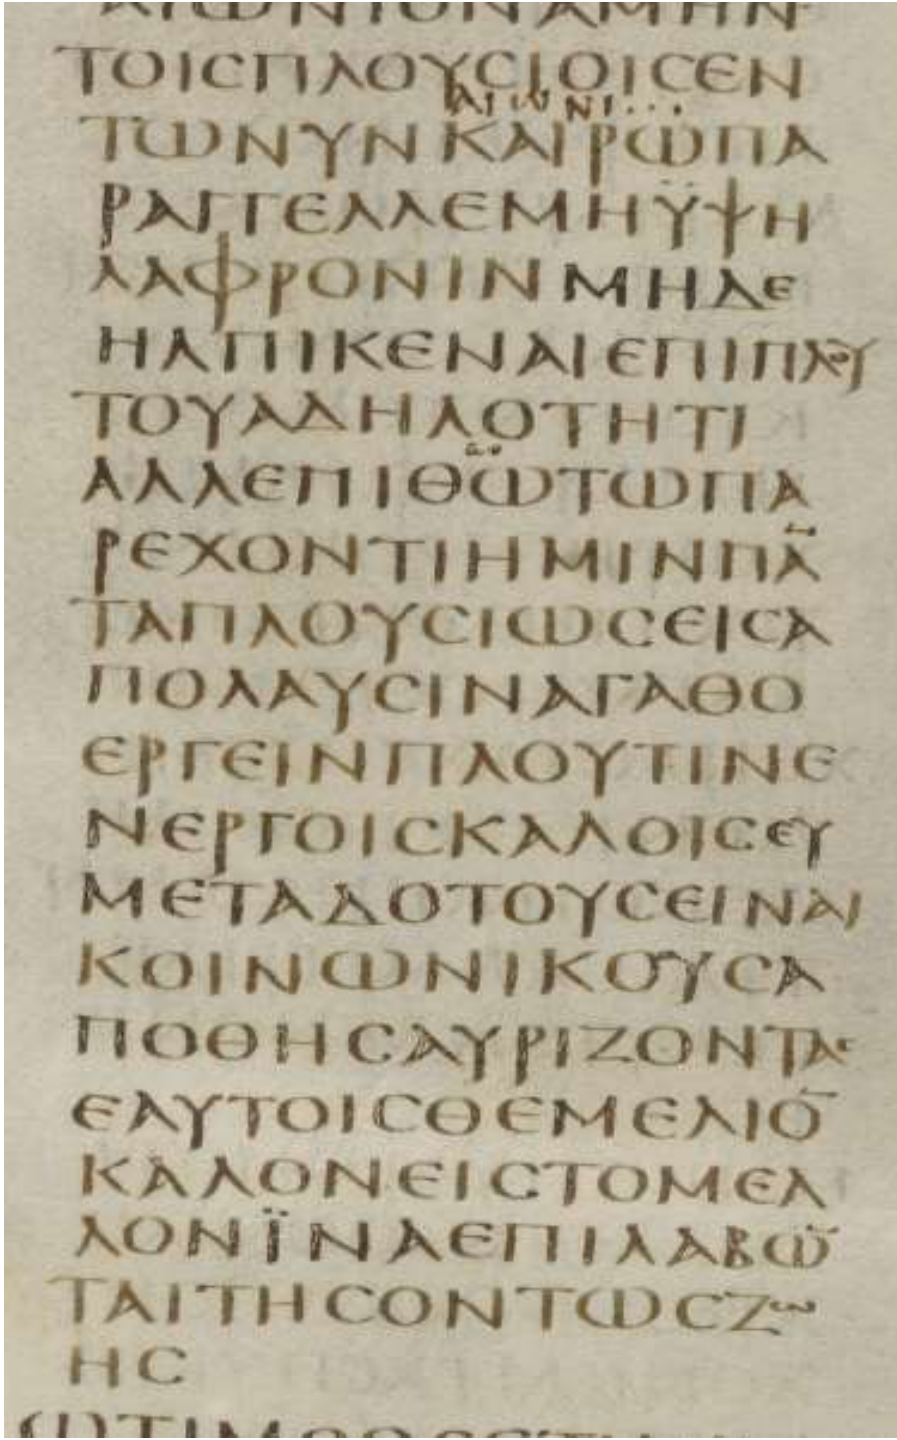 ΑΙΩΝΙΟΝΑΜΗΝ
ΤΟΙϹΠΛΟΥϹΙΟΙϹΕΝ
ΑΙΩΝΙ···
ΤΩΝΥΝΚΑΙΡΩΠΑ
ΡΑΓΓΕΛΛΕΜΗΫΨΗ
ΛΑΦΡΟΝΙΝΜΗΔΕ
ΗΛΠΙΚΕΝΑΙΕΠΙΠΛΟΥ
ΤΟΥΑΔΗΛΟΤΗΤΙ
ΑΛΛΕΠΙΘΩ̅ΤΩΠΑ
ΡΕΧΟΝΤΙΗΜΙΝΠΑ̅
ΤΑΠΛΟΥϹΙΩϹΕΙϹΑ
ΠΟΛΑΥϹΙΝΑΓΑΘΟ
ΕΡΓΕΙΝΠΛΟΥΤΙΝΕ
ΝΕΡΓΟΙϹΚΑΛΟΙϹΕΥ
ΜΕΤΑΔΟΤΟΥϹΕΙΝΑΙ
ΚΟΙΝΩΝΙΚΟΥϹΑ
ΠΟΘΗϹΑΥΡΙΖΟΝΤΑϹ
ΕΑΥΤΟΙϹΘΕΜΕΛΙΟ̅
ΚΑΛΟΝΕΙϹΤΟΜΕΛ
ΛΟΝΪΝΑΕΠΙΛΑΒΩ̅
ΤΑΙΤΗϹΟΝΤΩϹΖΩ
ΗϹ